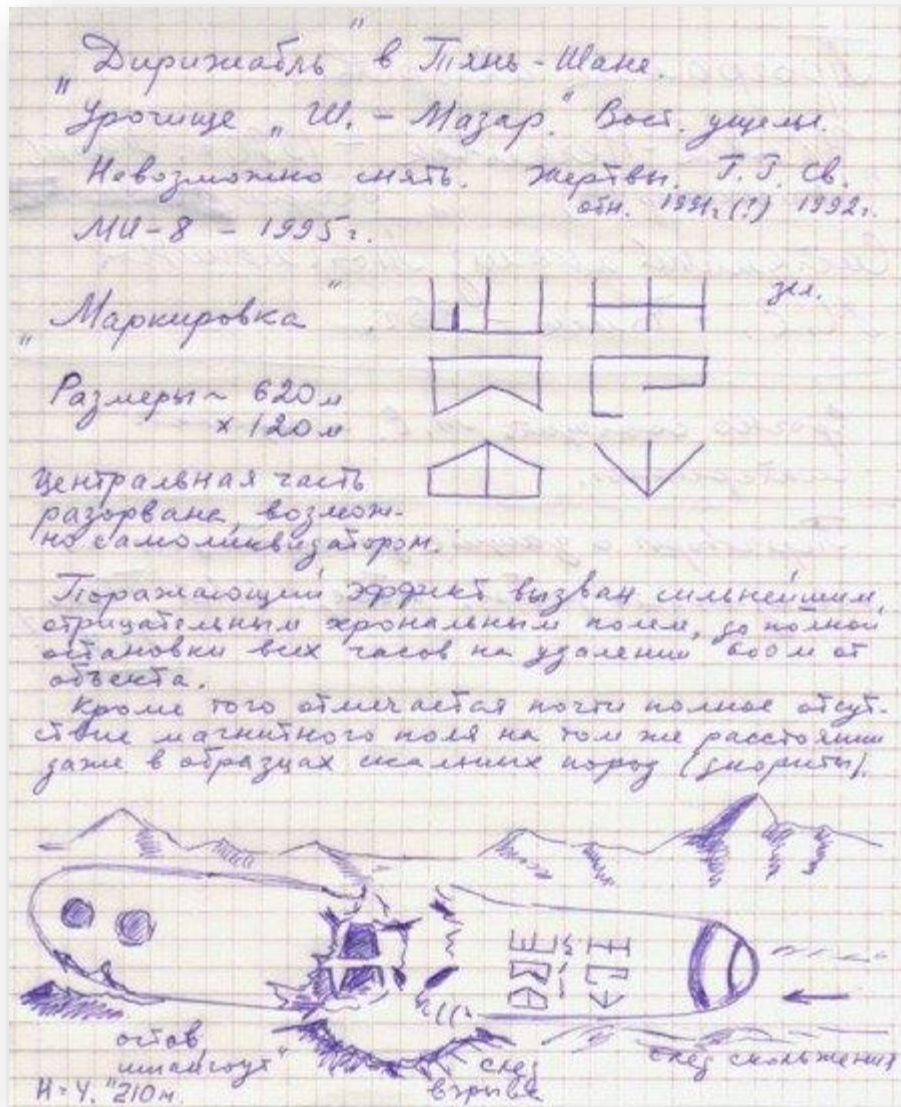 „Дирижабль" в Тянь-Шане.
Урочище „Ш.-Мазар." Вост. ущелье.
Невозможно снять. Жертвы. Г.Г. Св.
обн. 1991г.(?) 1992г.
МИ-8 - 1995г.
„Маркировка"
Размеры ~ 620м
х 120м
Центральная часть
разорвана, возмож-
но самоликвидатором.
Поражающий эффект вызван сильнейшим,
отрицательным хрональным полем, до полной
остановки всех часов на удалении 600м от
объекта.
Кроме того отмечается почти полное отсут-
ствие магнитного поля на том же расстоянии
даже в образцах скальных пород (диориты).
остов
шпангоут"
след
взрыва
след скольжения
210м.